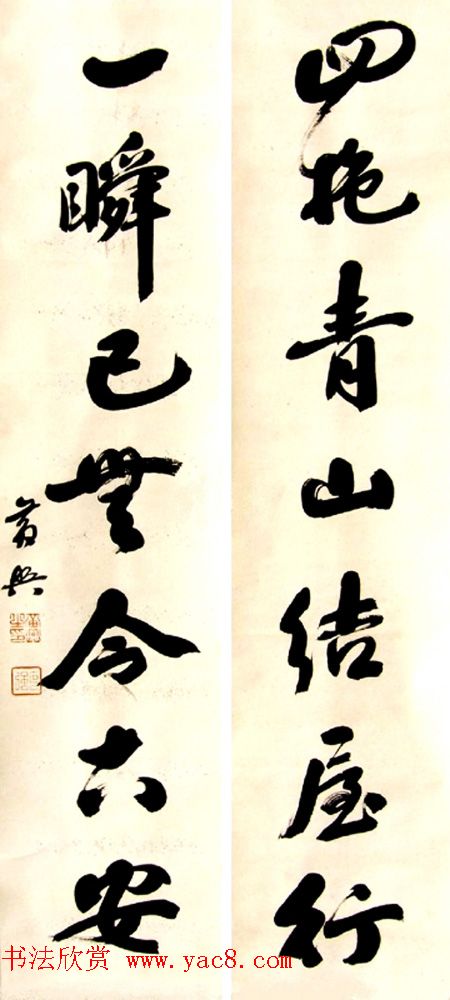 四青山結屋行
一瞬已無今古安
黃興
书法欣赏 www.yac8.com